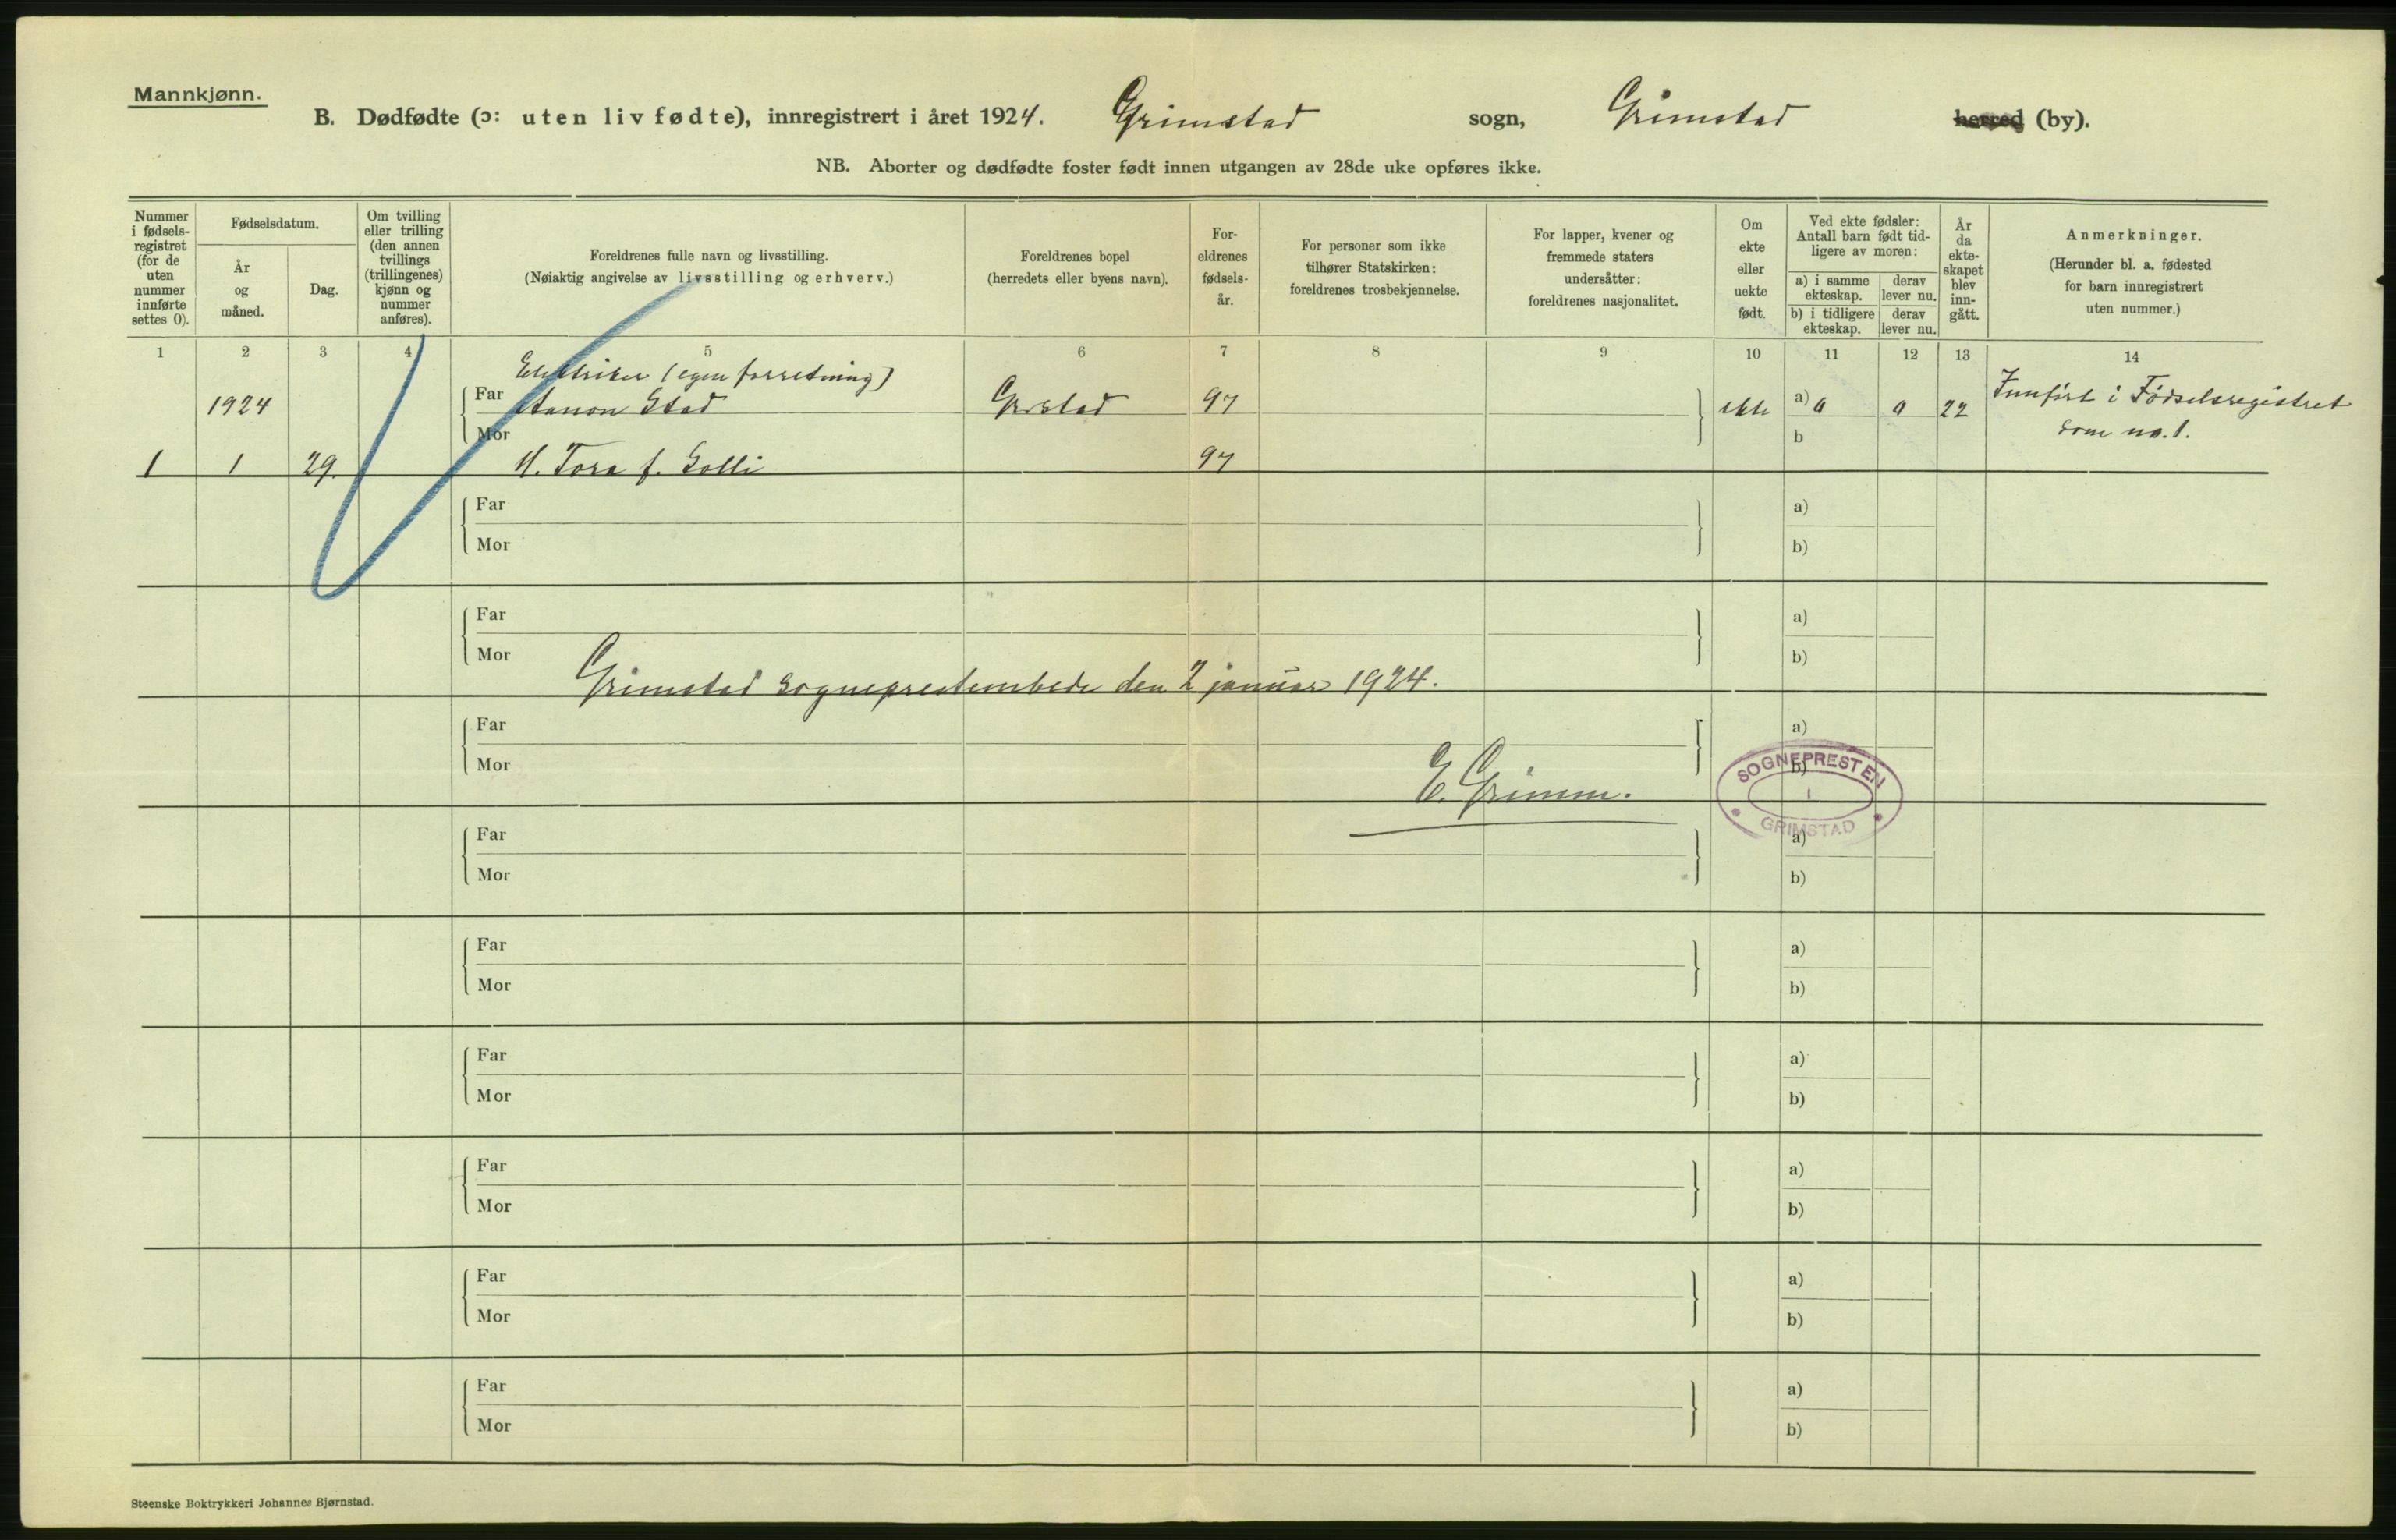 Mannkjønn.
B. Dødfødte (ɔ: uten liv fødte), innregistrert i året 1924. Grimstad sogn, Grimstad herred (by).
NB. Aborter og dødfødte foster født innen utgangen av 28de uke opføres ikke.
Nummer i fødsels-registret (for de uten nummer innførte settes 0).
Fødselsdatum.
År og måned.
Dag.
Om tvilling eller trilling (den annen tvillings (trillingenes) kjønn og nummer anføres).
Foreldrenes fulle navn og livsstilling.
(Nøiaktig angivelse av livsstilling og erhverv.)
Foreldrenes bopel
(herredets eller byens navn).
For-eldrenes fødsels-år.
For personer som ikke tilhører Statskirken: foreldrenes trosbekjennelse.
For lapper, kvener og fremmede staters undersåtter: foreldrenes nasjonalitet.
Om ekte eller uekte født.
Ved ekte fødsler: Antall barn født tid-ligere av moren:
a) i samme ekteskap.
derav lever nu.
b) i tidligere ekteskap.
derav lever nu.
År da ekte-skapet blev inn-gått.
Anmerkninger.
(Herunder bl. a. fødested for barn innregistrert uten nummer.)
1 2 3 4 5 6 7 8 9 10 11 12 13 14
Elektriker (egen forretning)
1924 Far Aanon Stad Grstad 97 ekte a) 0 0 22 Innført i Fødselsregistret
Mor b som no. 1.
1 1 29. M. Tora f. Solli 97
Far a)
Mor b)
Far a)
Mor b)
Grimstad sogneprestembede den 2 januar 1924.
Far a)
Mor b)
E. Grimm.
SOGNEPRESTEN I GRIMSTAD
Far a)
Mor b)
Far a)
Mor b)
Far a)
Mor b)
Far a)
Mor b)
Far a)
Mor b)
Far a)
Mor b)
Steenske Boktrykkeri Johannes Bjørnstad.